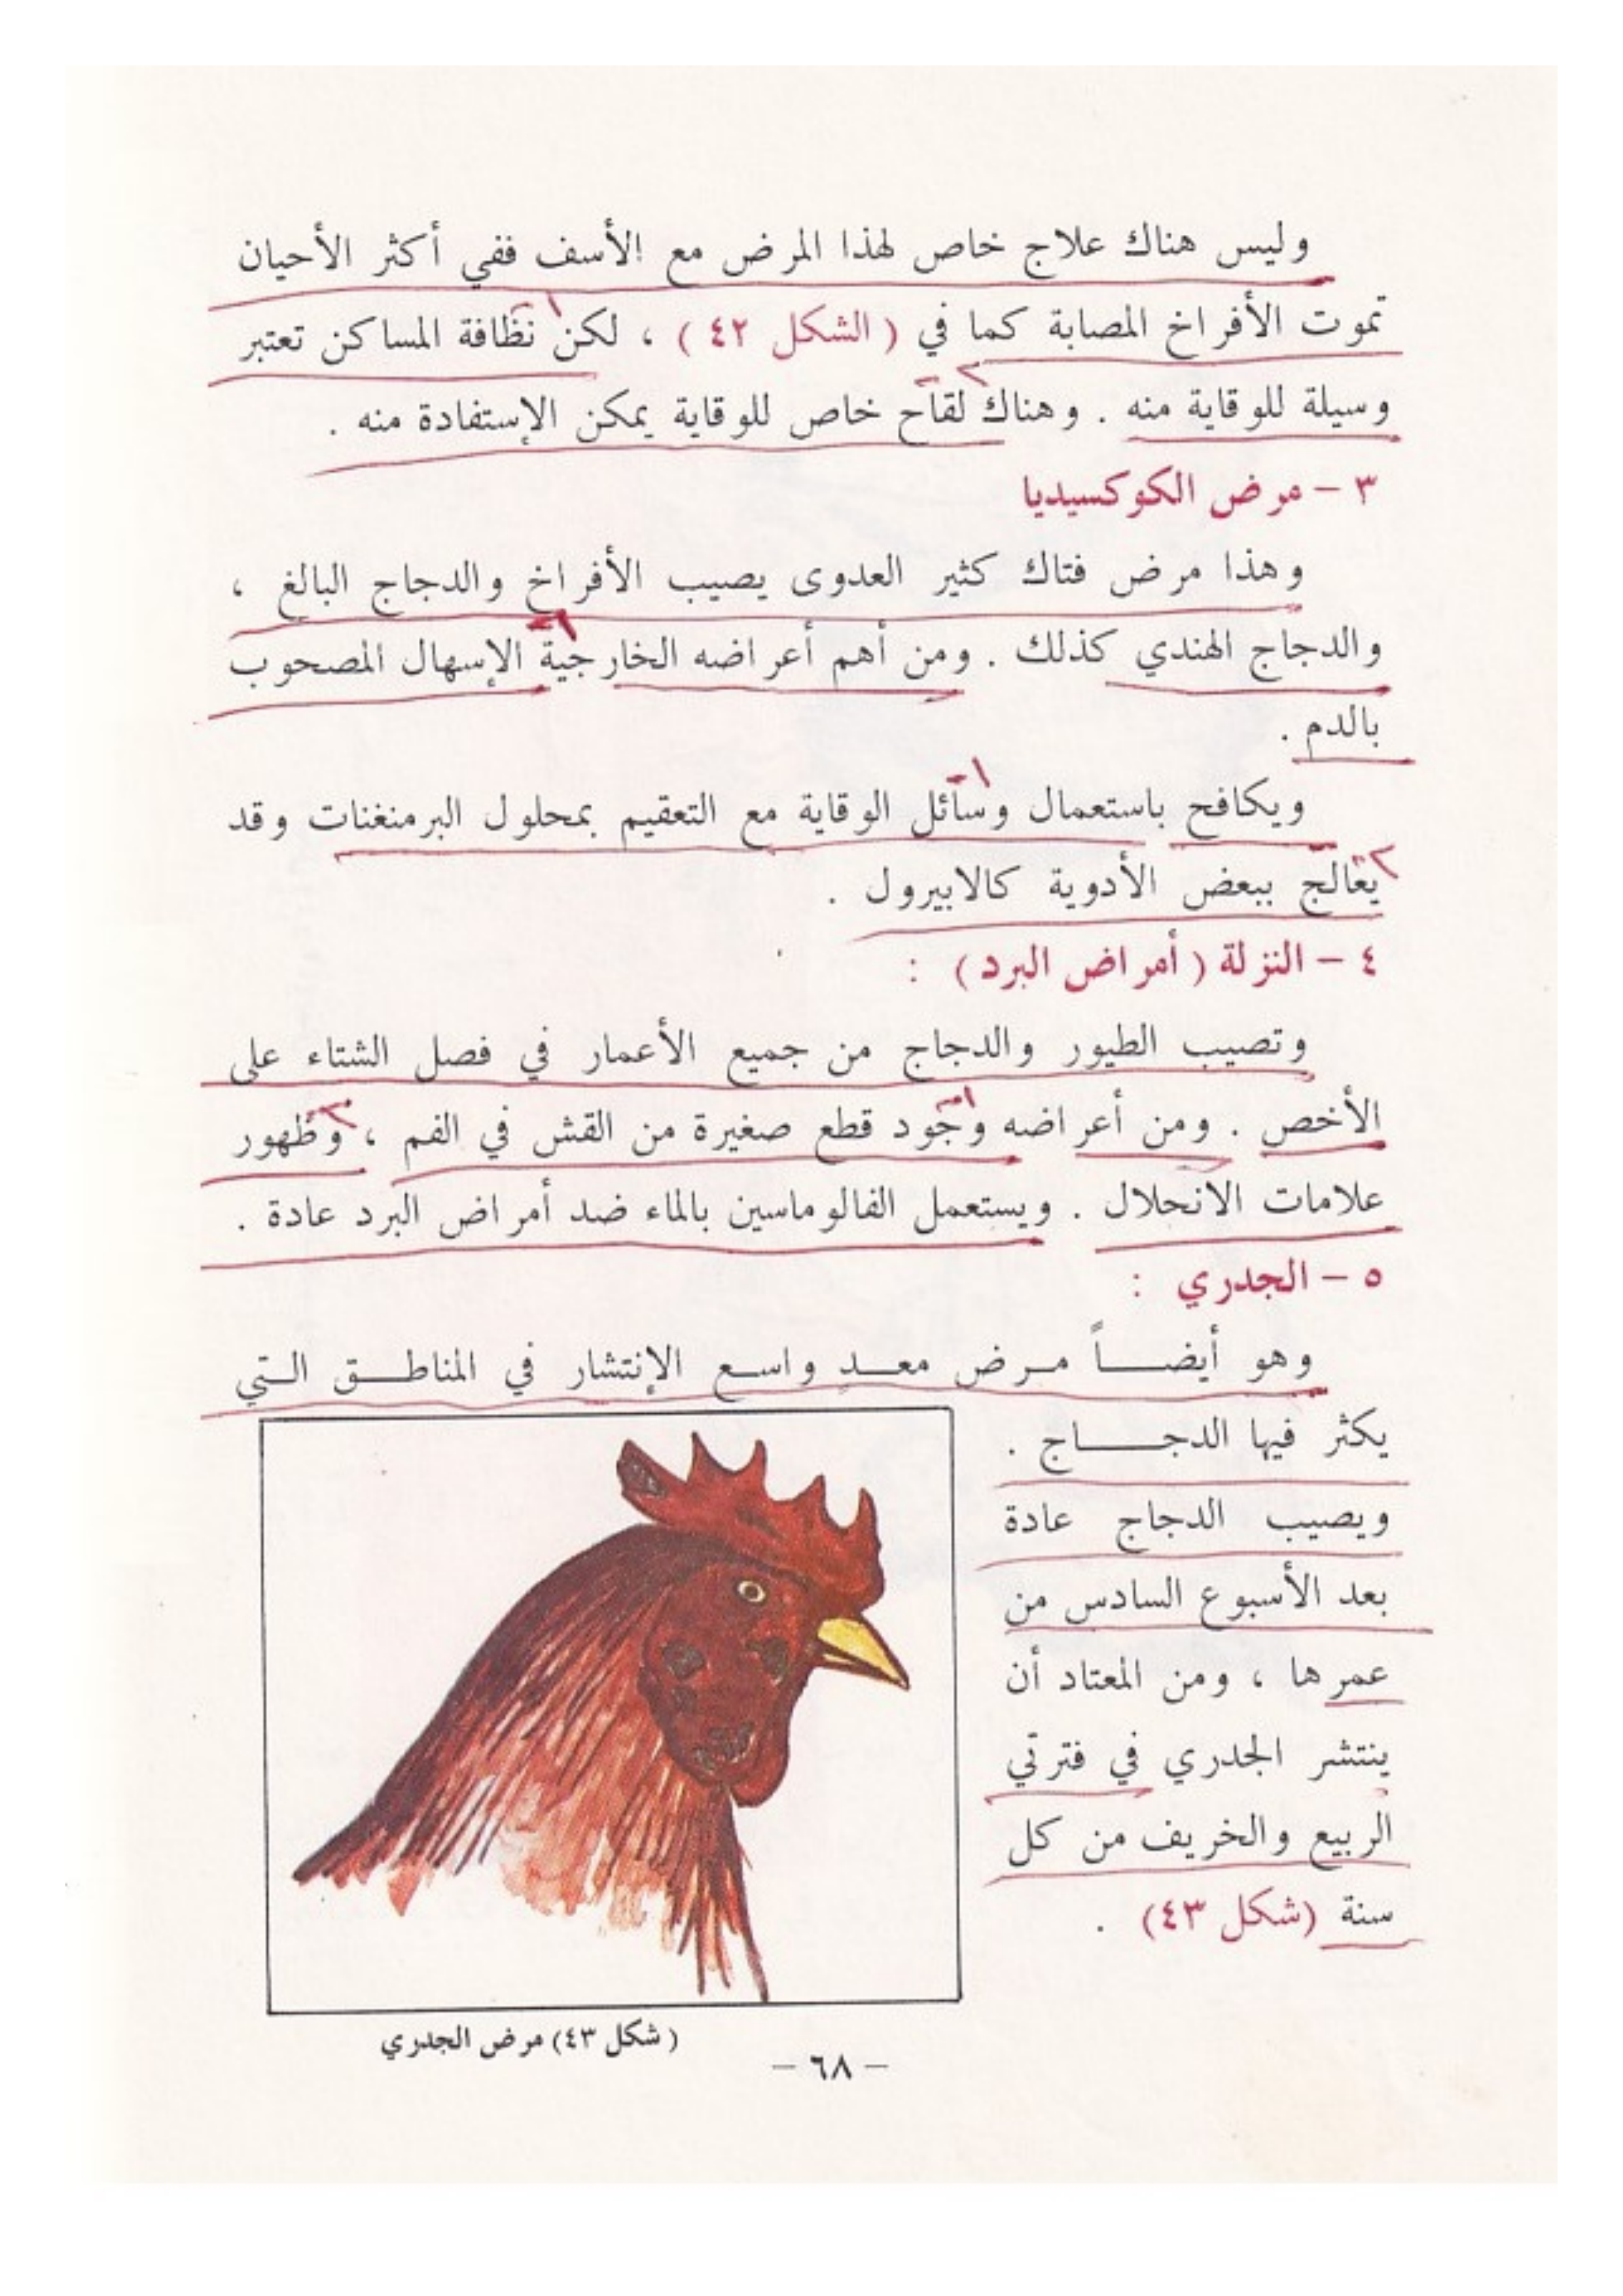 وليس هناك علاج خاص لهذا المرض مع الأسف ففي أكثر الأحيان
تموت الأفراخ المصابة كما في ( الشكل ٤٢ ) ، لكن نظافة المساكن تعتبر
وسيلة للوقاية منه . وهناك لقاح خاص للوقاية يمكن الإستفادة منه .
٣ – مرض الكوكسيديا
وهذا مرض فتاك كثير العدوى يصيب الأفراخ والدجاج البالغ ،
والدجاج الهندي كذلك . ومن أهم أعراضه الخارجية الإسهال المصحوب
بالدم .
ويكافح باستعمال وسائل الوقاية مع التعقيم بمحلول البرمنغنات وقد
يعالج ببعض الأدوية كالابيرول .
٤ – النزلة ( أمراض البرد ) :
وتصيب الطيور والدجاج من جميع الأعمار في فصل الشتاء على
الأخص . ومن أعراضه وجود قطع صغيرة من القش في الفم ، وظهور
علامات الانحلال . ويستعمل الفالوماسين بالماء ضد أمراض البرد عادة .
٥ – الجدري :
وهو أيضـــاً مـرض معـدٍ واسـع الإنتشار في المناطـق الـتي
يكثر فيها الدجـــاج .
ويصيب الدجاج عادة
بعد الأسبوع السادس من
عمرها ، ومن المعتاد أن
ينتشر الجدري في فترتي
الربيع والخريف من كل
سنة (شكل ٤٣) .
( شكل ٤٣) مرض الجدري
– ٦٨ –